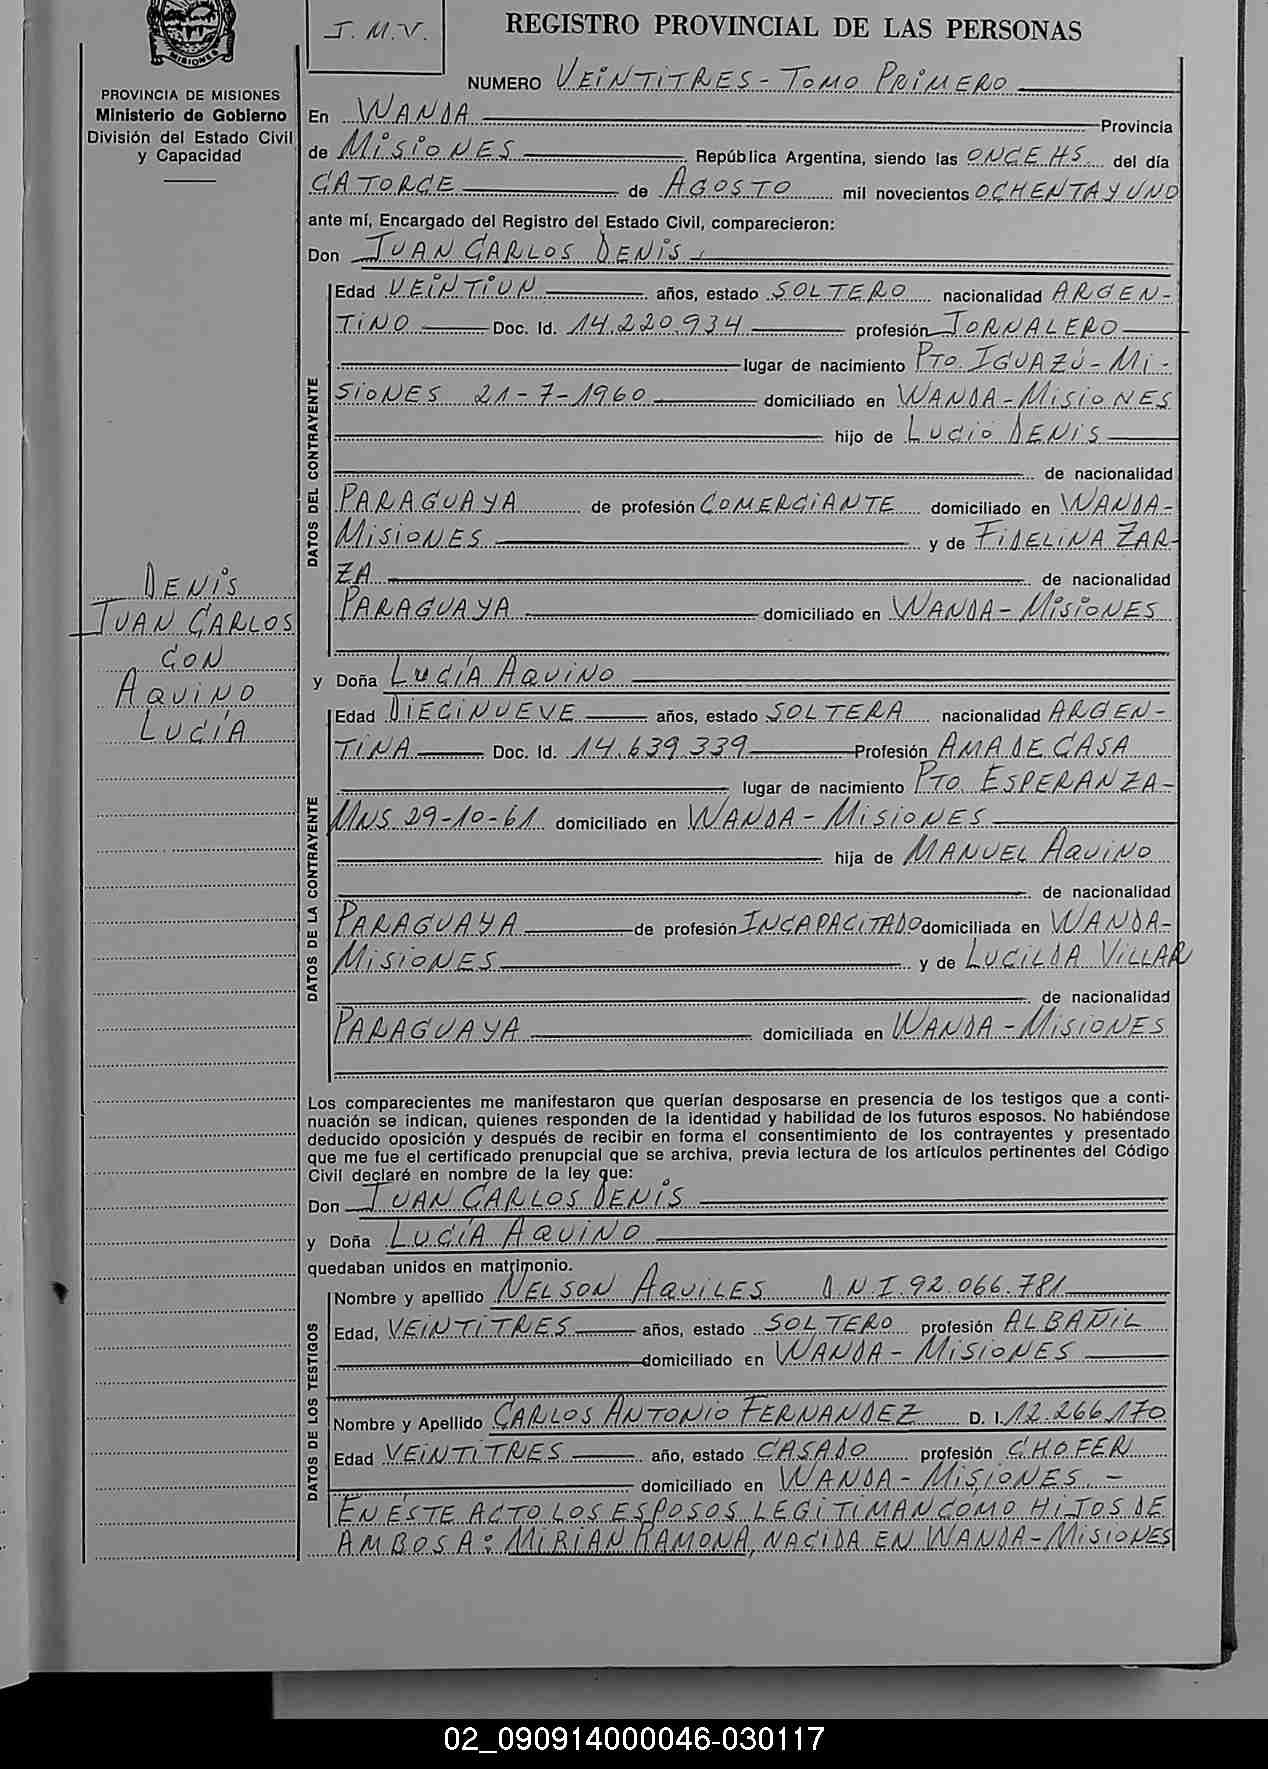 MISIONES
J. M. V.
REGISTRO PROVINCIAL DE LAS PERSONAS
PROVINCIA DE MISIONES
Ministerio de Gobierno
División del Estado Civil
y Capacidad
NUMERO VEINTITRES - TOMO PRIMERO
En WANDA Provincia
de MISIONES República Argentina, siendo las ONCE HS. del día
CATORCE de AGOSTO mil novecientos OCHENTA Y UNO
ante mí, Encargado del Registro del Estado Civil, comparecieron:
Don JUAN CARLOS DENIS
DATOS DEL CONTRAYENTE
Edad VEINTIUN años, estado SOLTERO nacionalidad ARGEN-
TINO Doc. Id. 14.220.934 profesión JORNALERO
lugar de nacimiento PTO. IGUAZÚ - MI-
SIONES 21-7-1960 domiciliado en WANDA - MISIONES
hijo de LUCIO DENIS
de nacionalidad
PARAGUAYA de profesión COMERCIANTE domiciliado en WANDA-
MISIONES y de FIDELINA ZAR-
ZA de nacionalidad
PARAGUAYA domiciliado en WANDA - MISIONES
DENIS
JUAN CARLOS
CON
AQUINO
LUCÍA
y Doña LUCÍA AQUINO
DATOS DE LA CONTRAYENTE
Edad DIECINUEVE años, estado SOLTERA nacionalidad ARGEN-
TINA Doc. Id. 14.639.339 Profesión AMA DE CASA
lugar de nacimiento PTO. ESPERANZA-
MNS. 29-10-61 domiciliado en WANDA - MISIONES
hija de MANUEL AQUINO
de nacionalidad
PARAGUAYA de profesión INCAPACITADO domiciliada en WANDA-
MISIONES y de LUCILDA VILLAR
de nacionalidad
PARAGUAYA domiciliada en WANDA - MISIONES
Los comparecientes me manifestaron que querían desposarse en presencia de los testigos que a conti-
nuación se indican, quienes responden de la identidad y habilidad de los futuros esposos. No habiéndose
deducido oposición y después de recibir en forma el consentimiento de los contrayentes y presentado
que me fue el certificado prenupcial que se archiva, previa lectura de los artículos pertinentes del Código
Civil declaré en nombre de la ley que:
Don JUAN CARLOS DENIS
y Doña LUCÍA AQUINO
quedaban unidos en matrimonio.
DATOS DE LOS TESTIGOS
Nombre y apellido NELSON AQUILES D.N.I. 92.066.781
Edad, VEINTITRES años, estado SOLTERO profesión ALBAÑIL
domiciliado en WANDA - MISIONES
Nombre y Apellido CARLOS ANTONIO FERNANDEZ D. I. 12.266.170
Edad VEINTITRES año, estado CASADO profesión CHOFER
domiciliado en WANDA - MISIONES. -
EN ESTE ACTO LOS ESPOSOS LEGITIMAN COMO HIJOS DE
AMBOS A: MIRIAN RAMONA, NACIDA EN WANDA - MISIONES
02_090914000046-030117